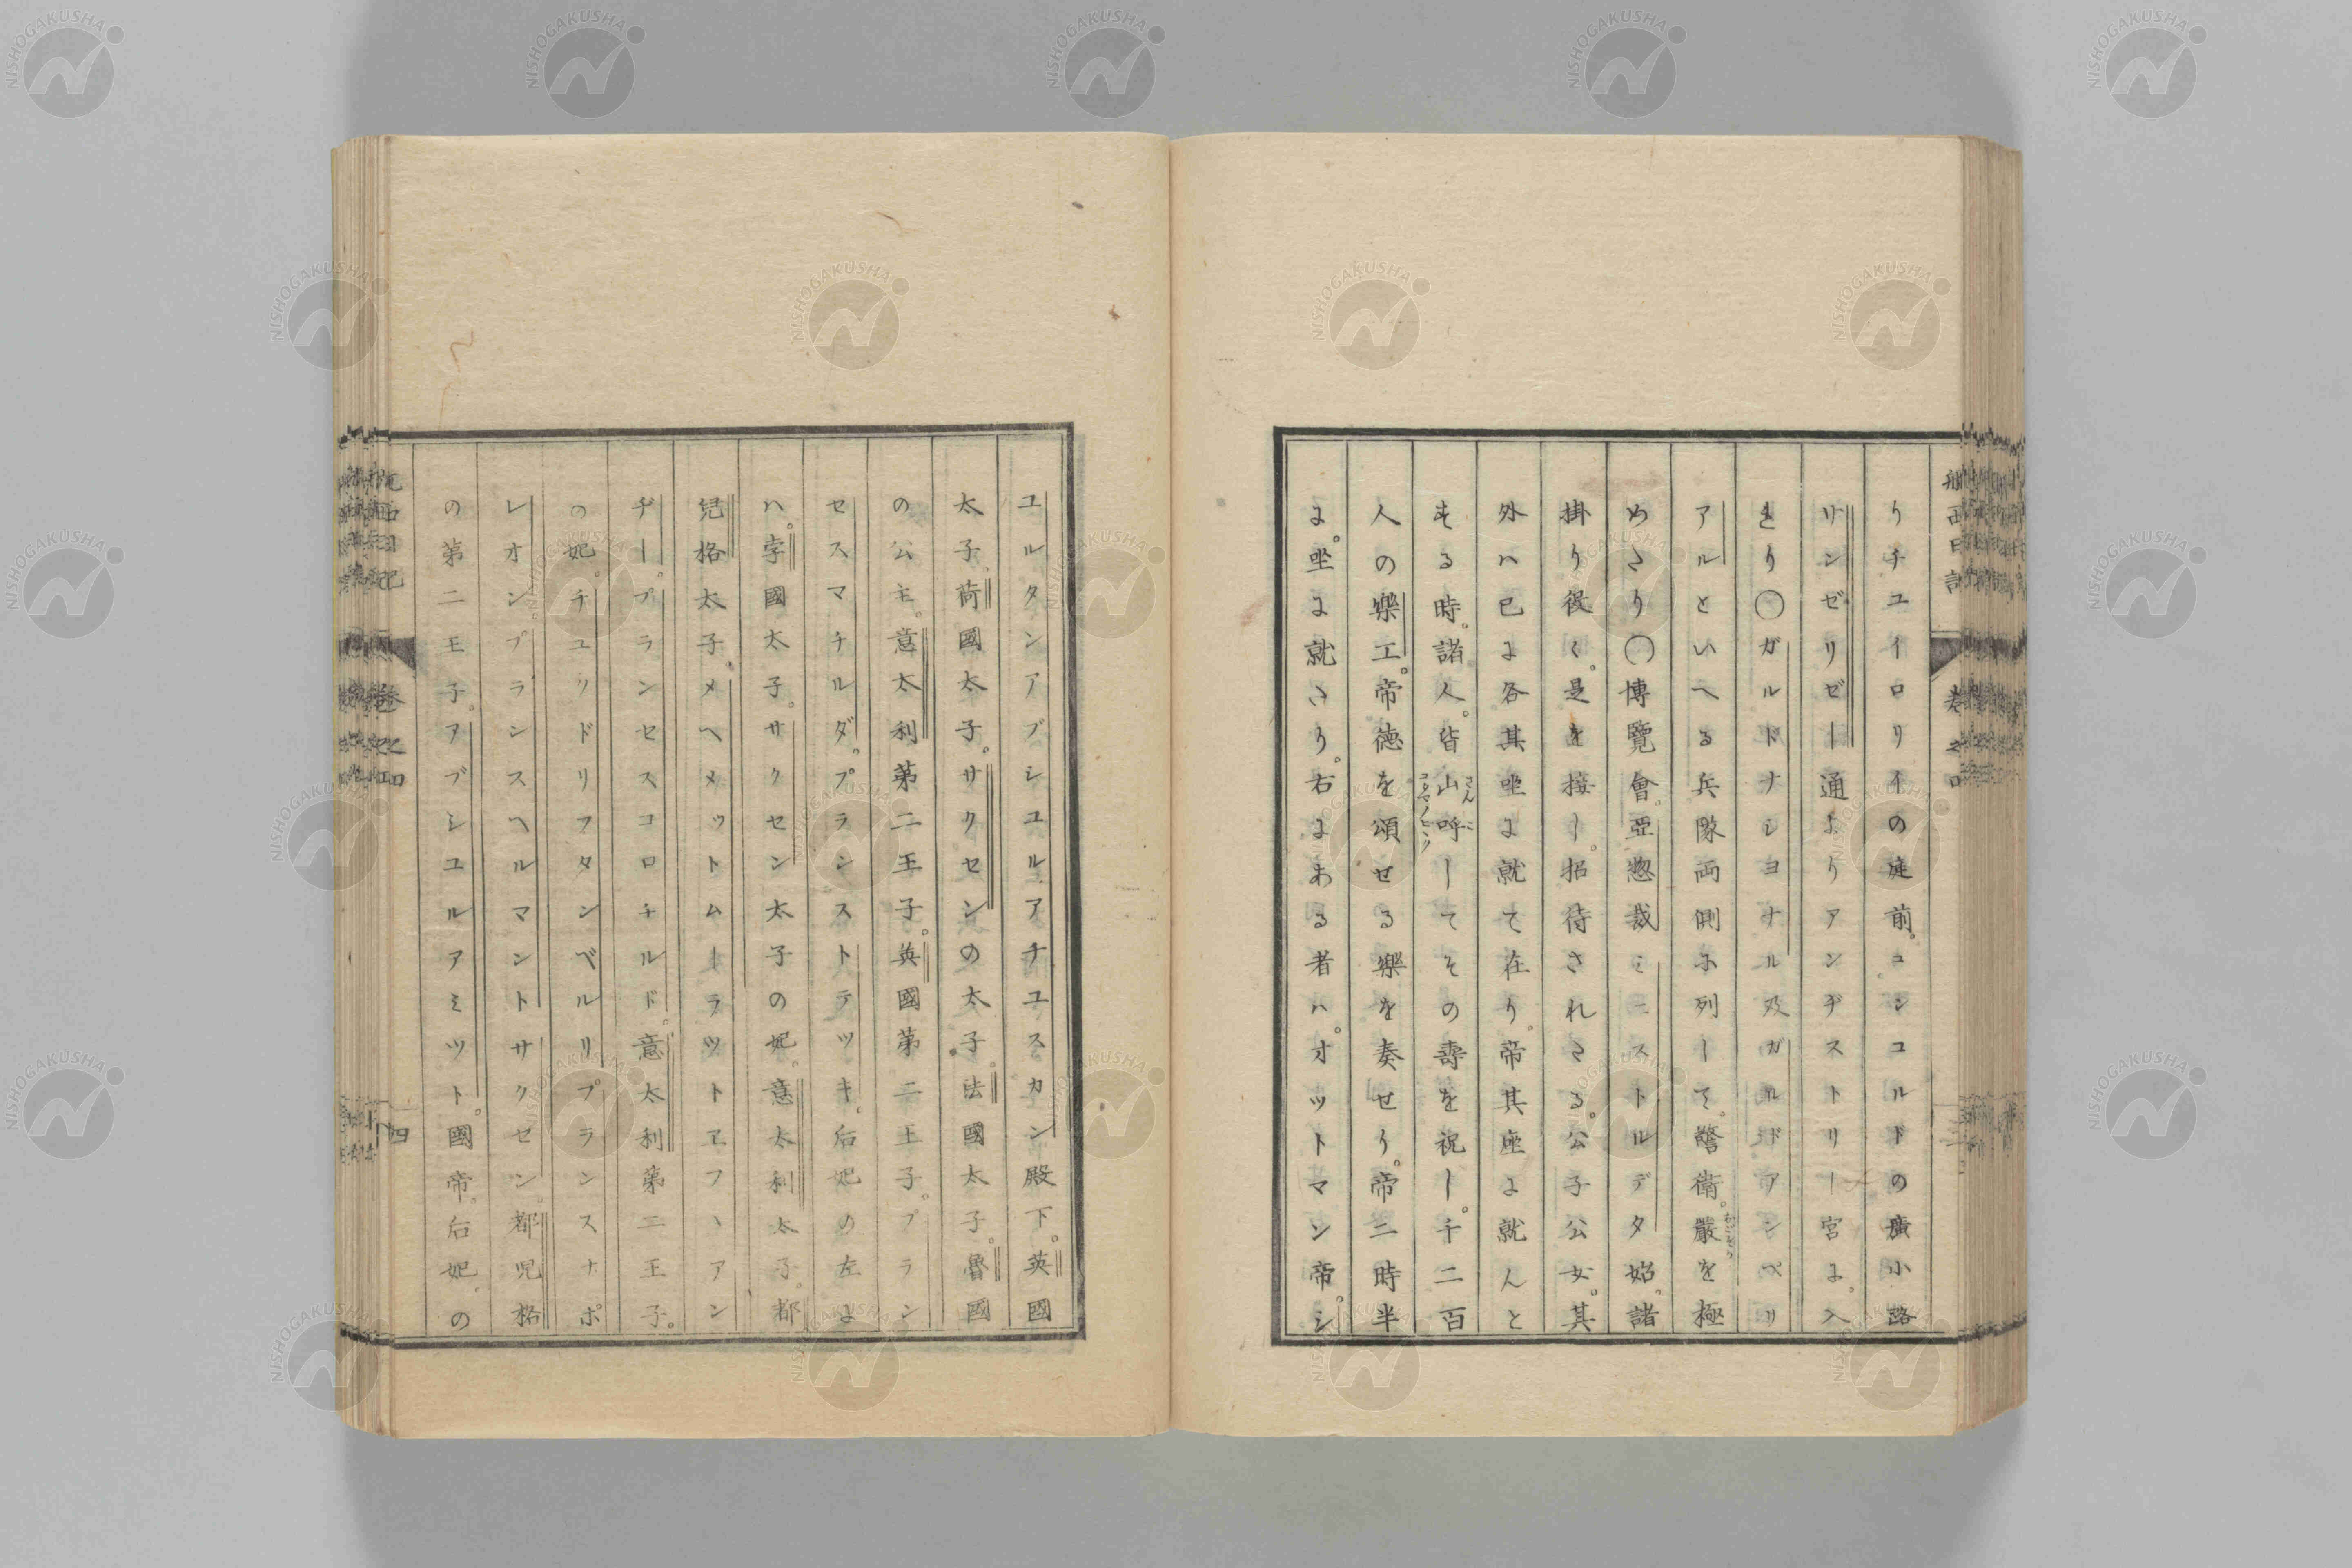 りチユイロリイの庭前。コンコルドの廣小路
サンゼリゼー通よりアンヂストリー宮に。入
きり〇ガルドナシヨナル及ガルドアンペリ
アルといへる兵隊両側に列して。警衛。嚴を極
めさり〇博覽會。亞惣裁ミニストルデタ始。諸
掛り役く。是を接し。招待されさる。公子公女。其
外ハ已に各其坐に就て在り。帝其座に就んと
する時。諸人。皆山呼してその壽を祝し。千二百
人の樂工。帝徳を頌せる樂を奏せり。帝二時半
に。坐に就さり。右にある者ハ。オットマン帝。シ
ユルタンアブシユルアチユスカン殿下。英國
太子。荷國太子。サクセンの太子。法國太子。魯國
の公主。意太利第二王子。英國第二王子。プラン
セスマチルダ。プランストテツキ。后妃の左に
ハ。孛國太子。サクセン太子の妃。意太利太子。都
兒格太子。メヘメットムーラットエフハアン
ヂー。プランセスコロチルド。意太利第二王子。
の妃。チユソドリフタンベルリプランスナポ
レオン。プランスヘルマントサクセン。都児格
の第二王子。アブシユルアミツト。國帝。后妃。の
航西日記 卷之四
四